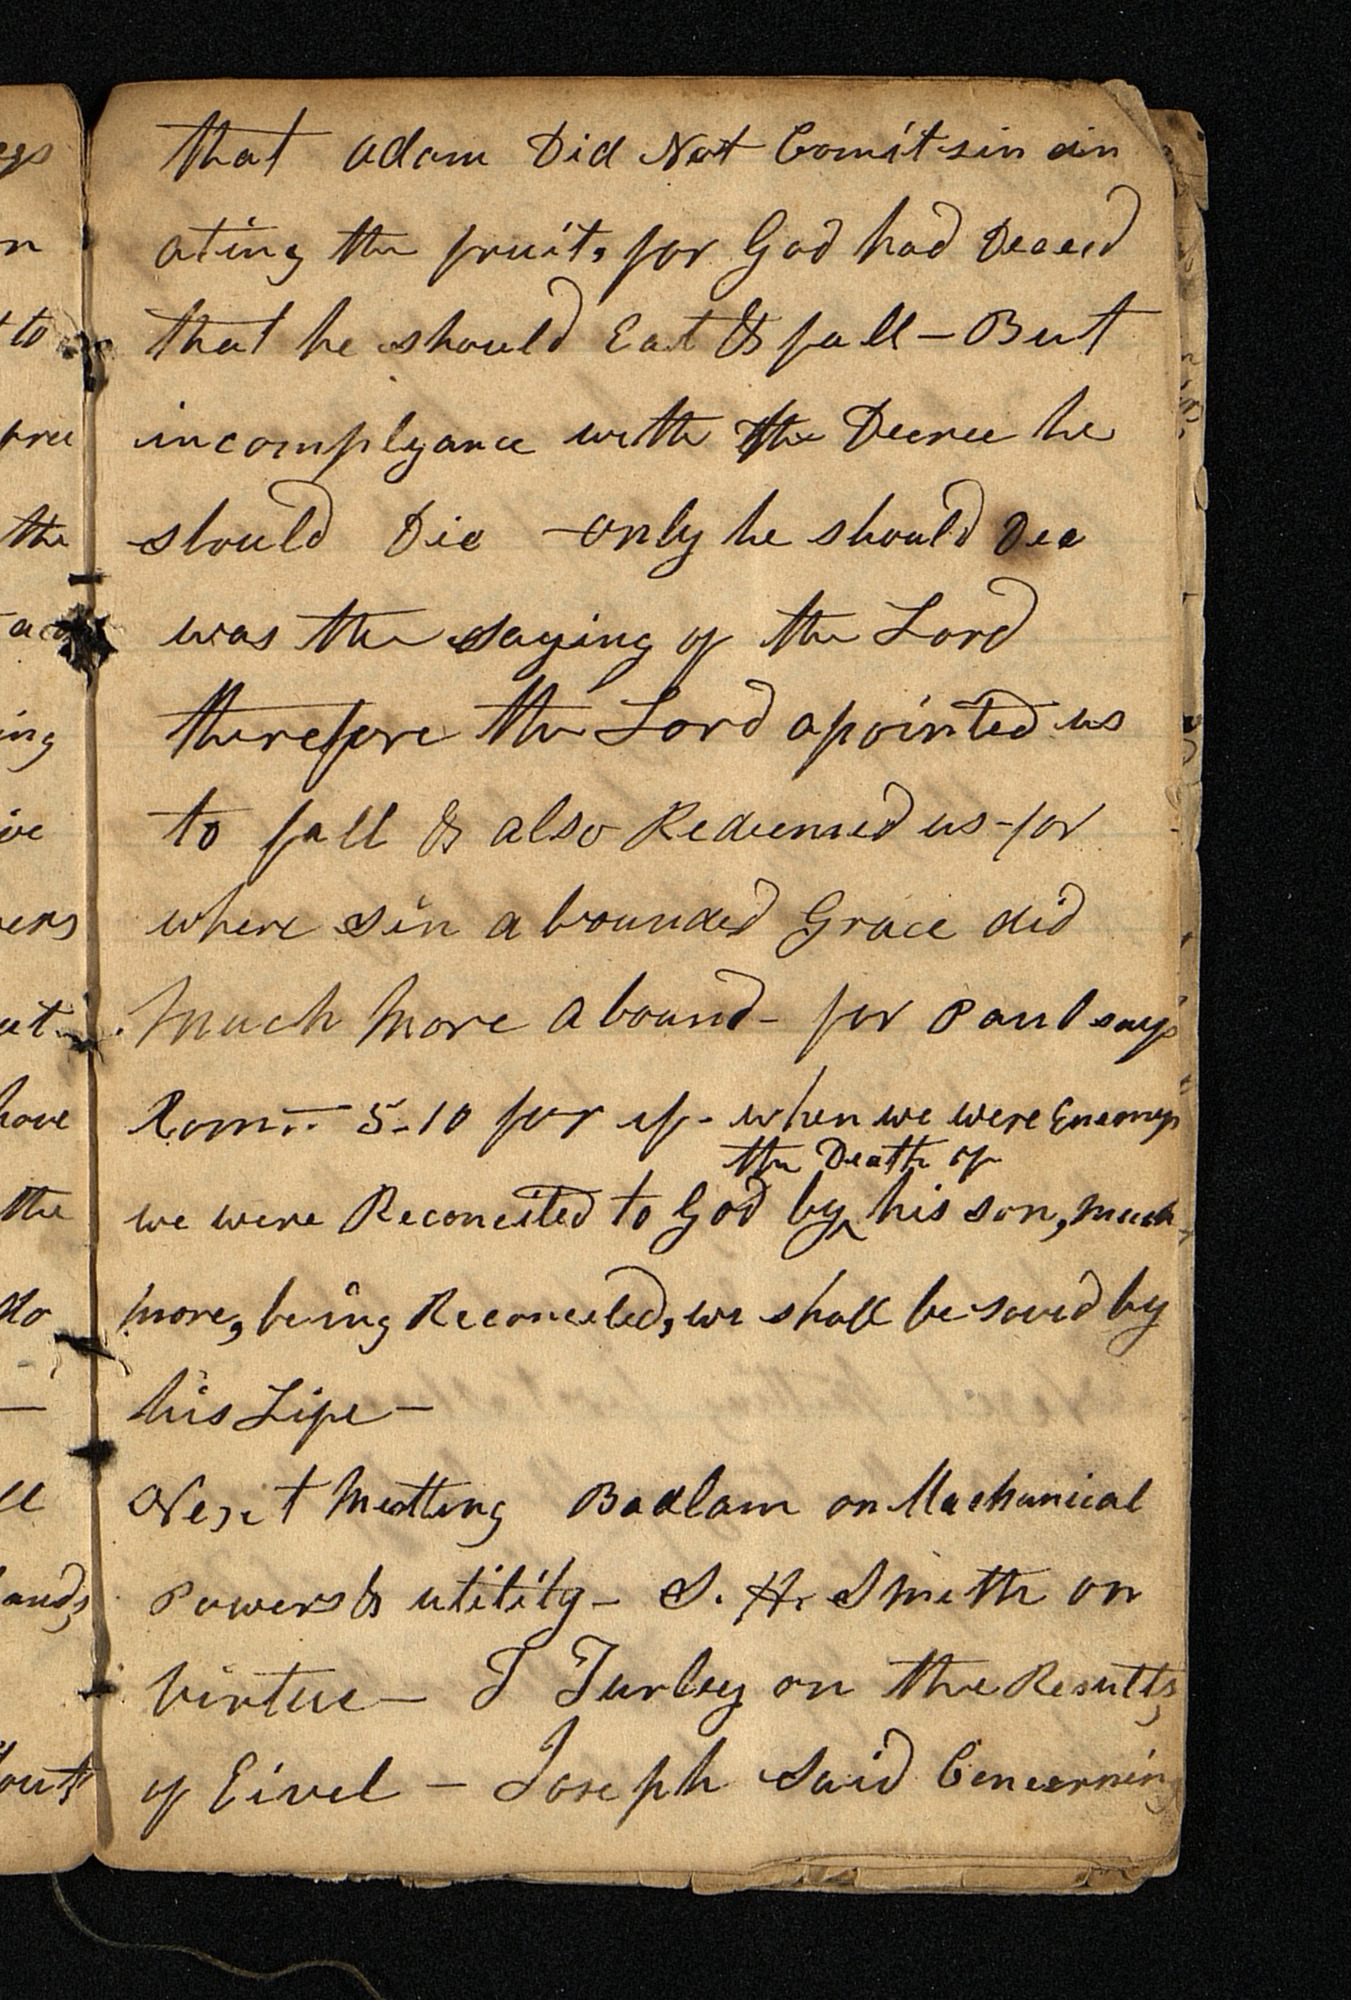 that adam Did Not Comit sin ein
ating the fruit, for God had Deceed
that he should Eat & fall – But
incomplyance with the Decree he
should Die – only he should Dee
was the saying of the Lord
therefore the Lord apointed us
to fall & also Redeemed us – for
where sin a bounded Grace did
Much More a bound – for Paul says
Rom. 5-10 for if – when we were Enemys
the Death of
we were Reconciled to God by ^ his son, much
more, being Reconciled, we shall be saved by
his Life –
Next Meetting Badlam on Mechanical
Powers & utility – S. H. Smith on
Virtue – T Turley on the Results
of Eivel – Joseph Said Concerning
egs
n
to
free
the
ing
ive
vers
ut
have
the
do
–
ll
ands,
out